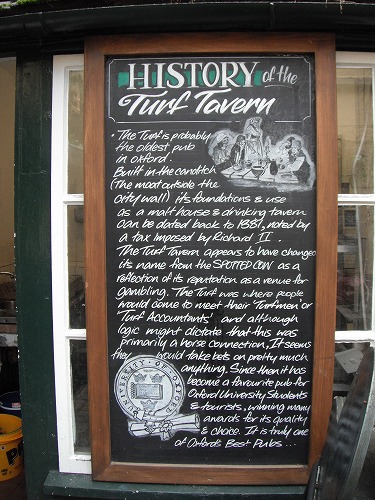 HISTORY of the
Turf Tavern
• The Turf is probably
the oldest pub
in oxford.
Built in the canditch
(The moat outside the
city wall) its foundations & use
as a malt house & drinking tavern
can be dated back to 1381, noted by
a tax imposed by Richard II.
The Turf Tavern appears to have changed
its name from the SPOTTED COW as a
reflection of its reputation as a venue for
gambling. The Turf was where people
would come to meet their 'Turfmen' or
'Turf Accountants' and although
logic might dictate that this was
primarily a horse connection, It seems
they would take bets on pretty much
anything. Since then it has
become a favourite pub for
Oxford University Students
& tourists, winning many
awards for its quality
& choice. It is truly one
of Oxford's Best Pubs...
UNIVERSITY OF OXFORD